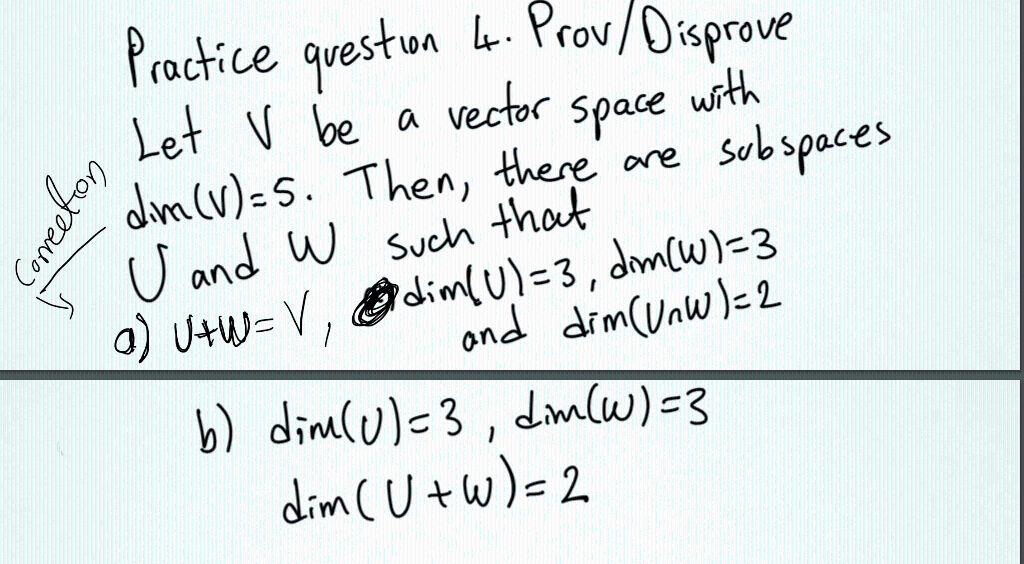 Practice question 4. Prov/Disprove
Let V be a vector space with
dim(V)=5. Then, there are subspaces
U and W such that
Correction
a) U+W=V, dim(U)=3, dim(W)=3
and dim(U∩W)=2
b) dim(U)=3, dim(W)=3
dim(U+W)=2